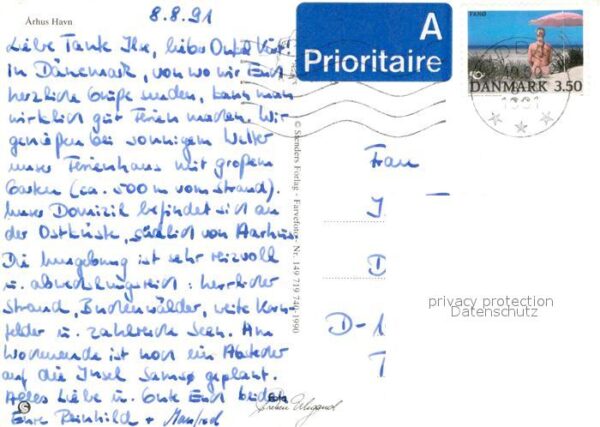 Århus Havn
8.8.91
Liebe Tante Ilse, lieber Onkel Kurt!
in Dänemark, von wo wir Euch
herzliche Grüße senden, kann man
wirklich gut Ferien machen. Wir
genießen bei sonnigem Wetter
unser Ferienhaus mit großem
Garten (ca. 500 m vom Strand).
Unser Domizil befindet sich an
der Ostküste, südlich von Aarhus.
Die Umgebung ist sehr reizvoll
u. abwechslungsreich: herrlicher
Strand, Buchenwälder, weite Korn-
felder u. zahlreiche Seen. Am
Wochenende ist noch ein Abstecher
auf die Insel Samsø geplant.
Alles Liebe u. Gute Euch beiden
Eure Reinhild + Manfred
A
Prioritaire
FANØ
DANMARK 3.50
1991
© Stenders Forlag - Farvefoto - Nr. 149 719 740-1990
Frau
I
D
D-1
T
privacy protection
Datenschutz